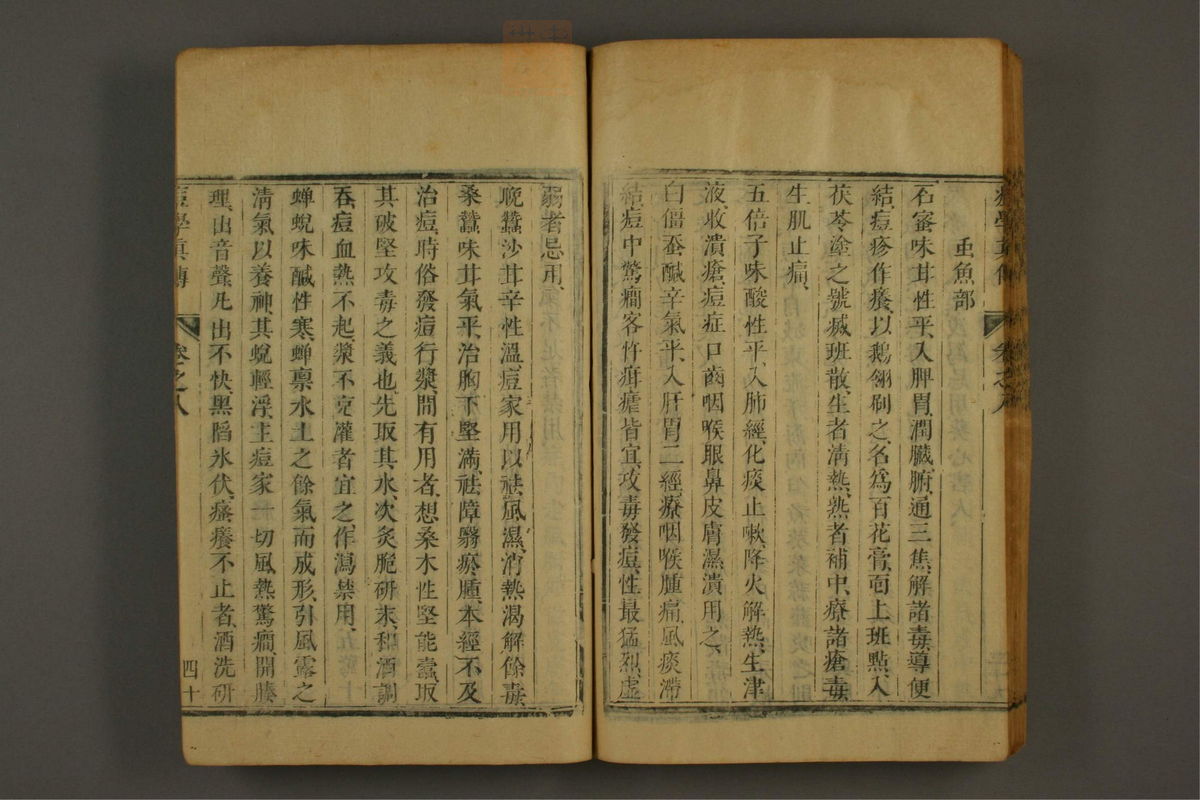 痘學眞傳 卷之八
虫魚部
石蜜味甘性平入脾胃潤臟腑通三焦解諸毒導便
結痘疹作癢以鵝翎刷之名爲百花膏面上班點入
茯苓塗之號滅班散生者淸熱熟者補中療諸瘡毒
生肌止痛
五倍子味酸性平入肺經化痰止嗽降火解熱生津
液收潰瘡痘症口齒咽喉眼鼻皮膚濕潰用之
白僵蚕鹹辛氣平入肝胃二經療咽喉腫痛風痰滯
結痘中驚癎客忤疳瘧皆宜攻毒發痘性最猛烈虛
弱者忌用
晚蠶沙甘辛性溫痘家用以祛風濕消熱渴解餘毒
桑蠹味甘氣平治胸下堅滿祛障翳瘀腫本經不及
治痘時俗發痘行漿間有用者想桑木性堅能蠹取
其破堅攻毒之義也先取其水次炙脆硏末和酒調
吞痘血熱不起漿不克灌者宜之作瀉禁用
蟬蛻味鹹性寒蟬稟水土之餘氣而成形引風露之
淸氣以養神其蛻輕浮主痘家一切風熱驚癎開腠
理出音聲凡出不快黑陷氷伏瘙癢不止者酒洗硏
痘學眞傳 卷之八 四十